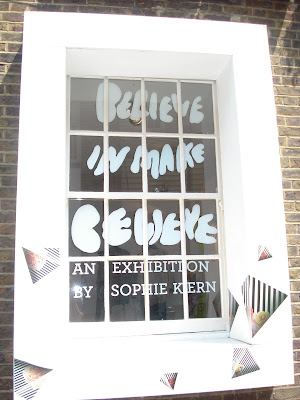 BELIEVE
IN MAKE
BELIEVE
AN EXHIBITION
BY SOPHIE KERN